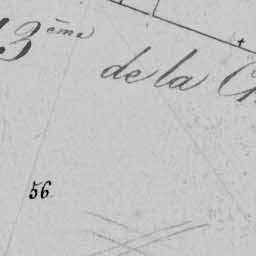 13ème
de la
56